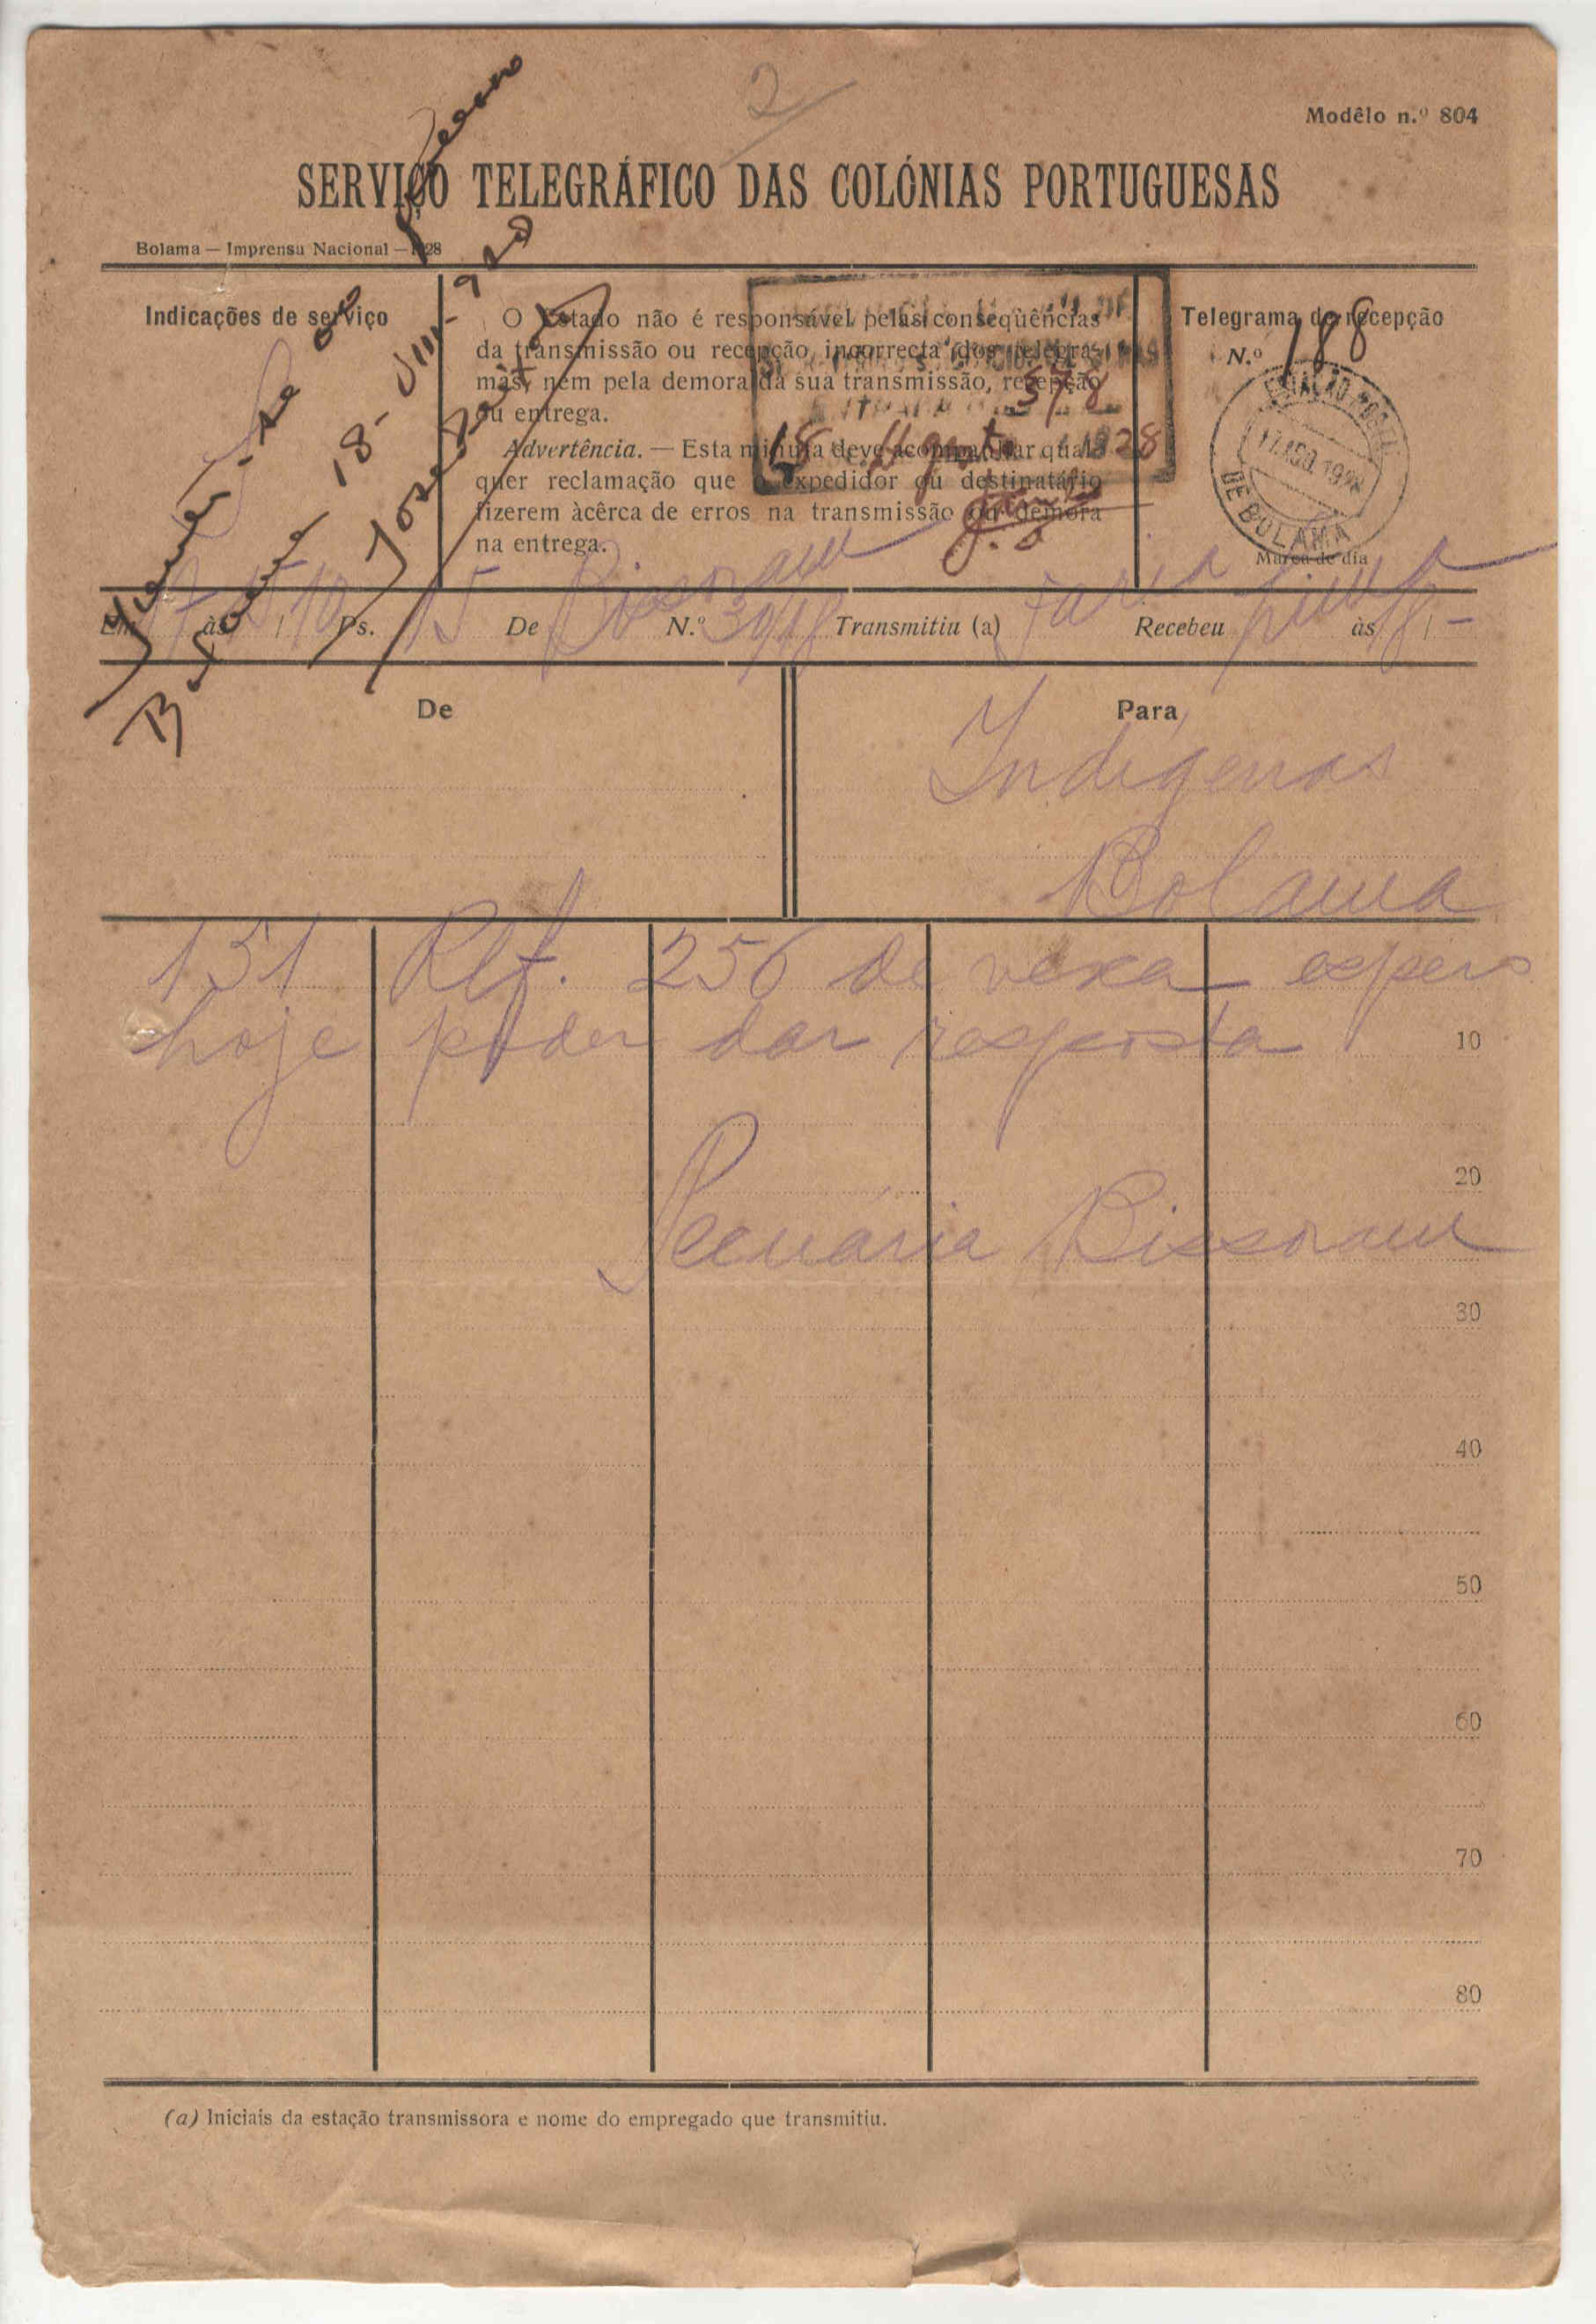 2
Modêlo n.º 804
SERVIÇO TELEGRÁFICO DAS COLÓNIAS PORTUGUESAS
Bolama — Imprensa Nacional — 1928
Indicações de serviço
O Estado não é responsável pelas conseqüências
da transmissão ou recepção incorrecta dos telegra-
mas, nem pela demora da sua transmissão, recepção
ou entrega.
Advertência. — Esta minuta deve acompanhar qual-
quer reclamação que o expedidor ou destinatário
fizerem àcêrca de erros na transmissão ou demora
na entrega.
578
18 Agosto 1928
Telegrama de recepção
N.º 198
ESTAÇÃO POSTAL
17.AGO.192
DE BOLAMA
Marca de dia
18-VIII-928
Em 17 às 15/10 Ps. 15 De Bissoram N.º 39/18 Transmitiu (a) Faria Recebeu às 18/-
De
Para
Indígenas
Bolama
131 Ref. 256 de vexa espero
hoje poder dar resposta
10
20
Pecuária Bissoram
30
40
50
60
70
80
(a) Iniciais da estação transmissora e nome do empregado que transmitiu.